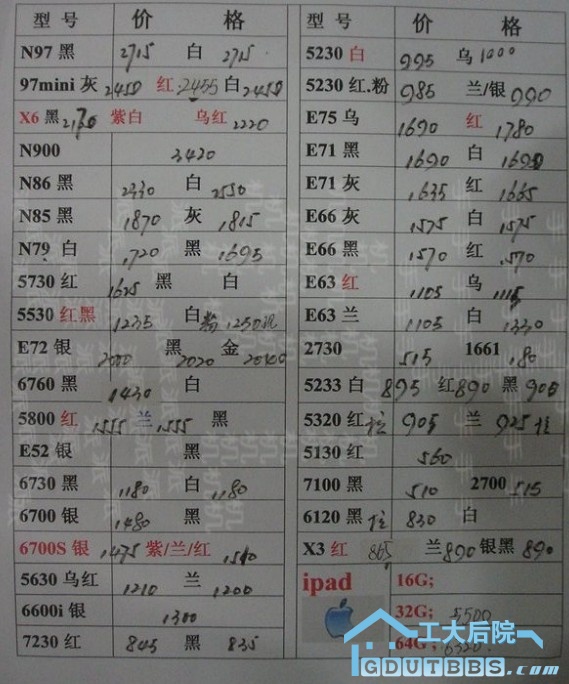 型 号 价 格
N97 黑 2715 白 2715
97mini 灰 2450 红 2455 白 2450
X6 黑 紫白 乌红 2220
N900 3420
N86 黑 2330 白
N85 黑 1870 灰 1815
N79 白 1720 黑 1695
5730 红 1625 黑 白
5530 红黑 1235 白 粉 1250
E72 银 2000 黑 2020 金
6760 黑 1430 白
5800 红 1555 兰 1555 黑
E52 银 黑
6730 黑 1180 白 1180
6700 银 1480 黑
6700S 银 1475 紫/兰/红
5630 乌红 1210 兰 1200
6600i 银 1300
7230 红 845 黑 835
型 号 价 格
5230 白 995 乌 1000
5230 红.粉 985 兰/银 990
E75 乌 1690 红 1780
E71 黑 1690 白 1690
E71 灰 1635 红 1665
E66 灰 1575 白 1575
E66 黑 1570 红 1570
E63 红 1105 乌 1115
E63 兰 1105 白
2730 515 1661 180
5233 白 895 红 890 黑 900
5320 红 905 兰 925
5130 红 560
7100 黑 510 2700 515
6120 黑 830 白
X3 红 865 兰 890 银黑 890
ipad 16G;
32G; 5500
64G;
工大后院
GDUTBBS.com